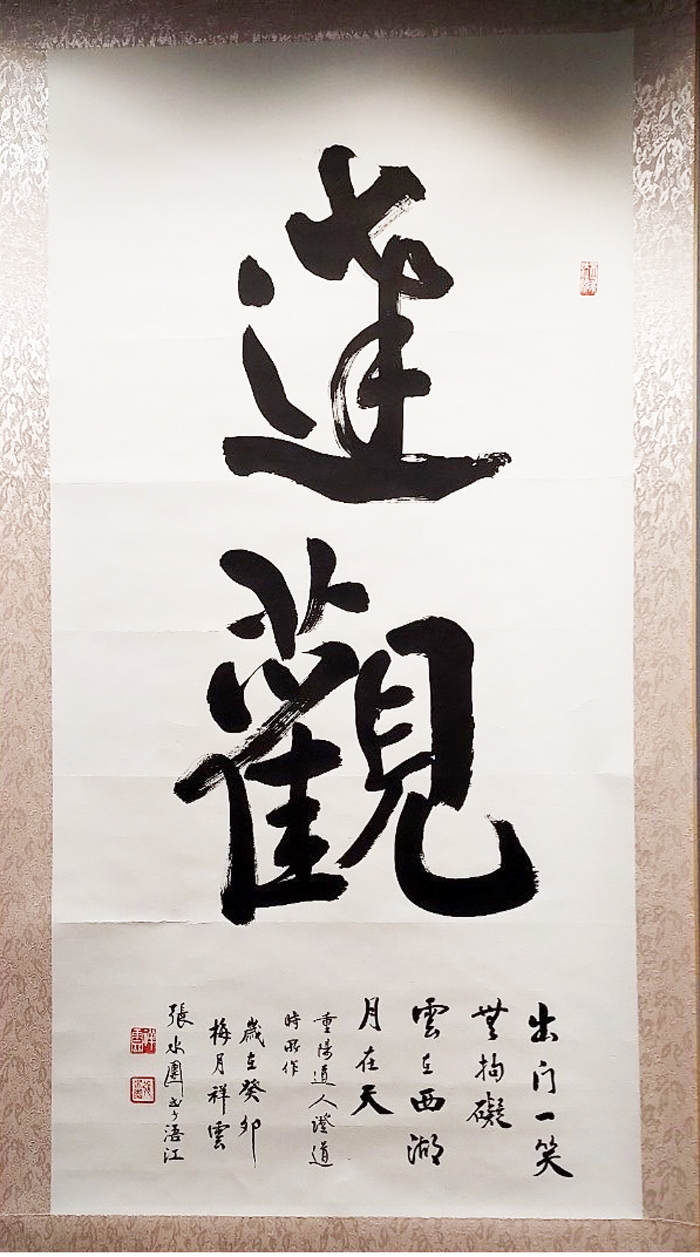 達
觀
出门一笑
無拘礙
雲在西湖
月在天
重陽道人證道
時所作
歲在癸卯
梅月祥雲
張水團書于浯江